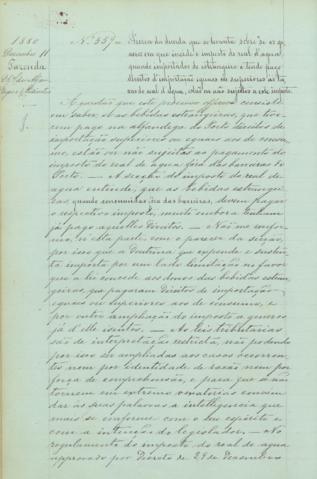 1880
Dezembro 11
Fazenda
N.º 559
Acerca da duvida que se levanta sobre se os ge-
neros em que incide o imposto de real d'agua,
quando importados do estrangeiro e tendo pago
direitos d'importação eguaes ou superiores ás ta-
xas do real d'agua, estão ou não sujeitos a este imposto.
A questão que este processo offerece consiste
em saber se as bebidas estrangeiras, que tive-
rem pago na alfandega do Porto direitos de
importação superiores ou eguaes aos de consu-
mo, estão ou não sujeitas ao pagamento do
imposto do real de agua fóra das barreiras do
Porto. — A secção do imposto do real de
agua entende, que as bebidas estrangei-
ras, quando consumidas fóra das barreiras, devem pagar
o respectivo imposto, muito embora tenham
já pago aquelles direitos. — Não me confor-
mo, n'esta parte, com o parecer da secção,
por isso que a doutrina que expende e susten-
ta importa por um lado limitação no favor
que a lei concede aos donos das bebidas estran-
geiras, que pagaram direitos de importação
eguaes ou superiores aos de consumo, e
por outro ampliação do imposto a generos
já d'elle isentos. — As leis tributarias
são de interpretação restricta, não podendo
por isso ser ampliadas aos casos occorren-
tes nem por identidade de razão nem por
força de comprehensão, e para que se não
tornem em extremo vexatorias convem
dar ás suas palavras a intelligencia que
mais se conforme com o seu espirito e
com a intenção do legislador. — No
regulamento do imposto do real de agua
approvado por Decreto de 29 de Dezembro